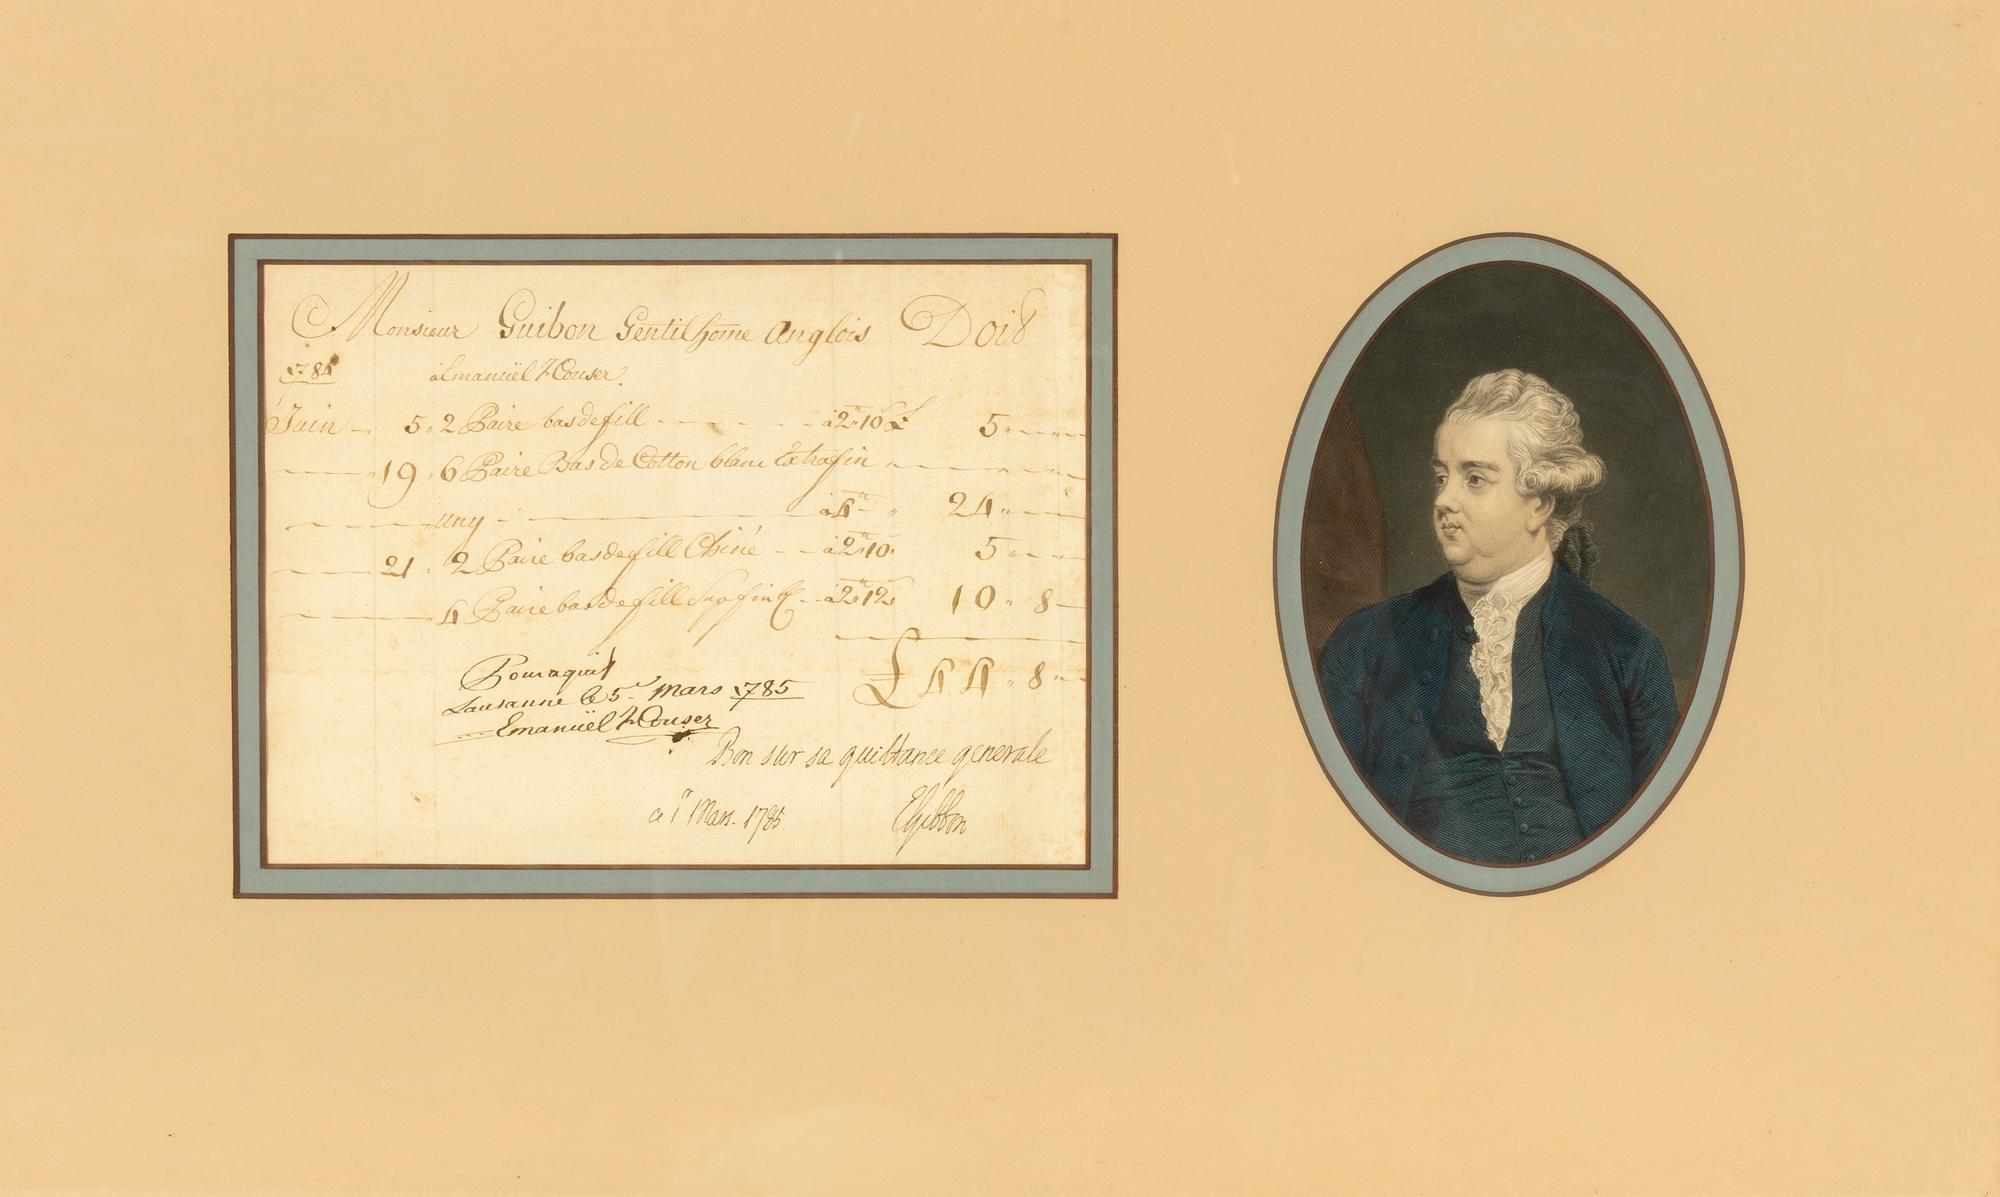 Monsieur Guibon Gentilhome Anglois Doit
1784 à Emanüel
Juin 5. 2 Paire bas de fill à 2"10 £ 5"
19 " 6 Paire Bas de Cotton blanc Extrafin
uny à 4" " 24"
21 . 2 Paire bas de fill Chiné à 2"10" 5"
4 Paire bas de fill Supfin à 2"12" 10 " 8
£ 44 " 8
Pouraquit
Lausanne le 5 Mars 1785
Emanüel
Bon sur sa quittance generale
a Mars. 1785 EGibbon